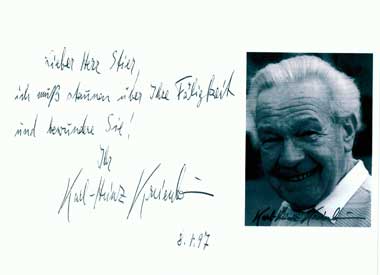 Lieber Herr Stier,
ich muß staunen über Ihre Fähigkeit
und bewundre Sie!
Ihr
Karl-Heinz
8.1.97
Karl-Heinz